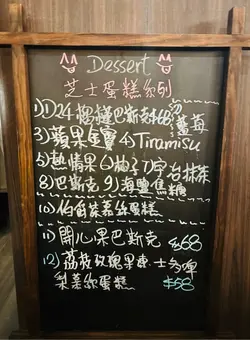 Dessert
芝士蛋糕系列
1) D24 榴槤巴斯克 $68
薑莓
3) 蘋果金寶 4) Tiramisu
5) 熱情果 6) 柚子 7) 宇治抹茶
8) 巴斯克 9) 海鹽焦糖
10) 伯爵茶慕絲蛋糕
11) 開心果巴斯克 $68
12) 荔枝玫瑰果 士多啤
梨慕絲蛋糕 $58